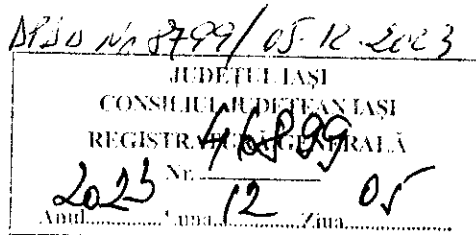 DPSD Nr 8799/05.12.2023
JUDEȚUL IAȘI
CONSILIUL JUDEȚEAN IAȘI
REGISTRATURĂ GENERALĂ
Nr. 46899
Anul 2023 Luna 12 Ziua 05